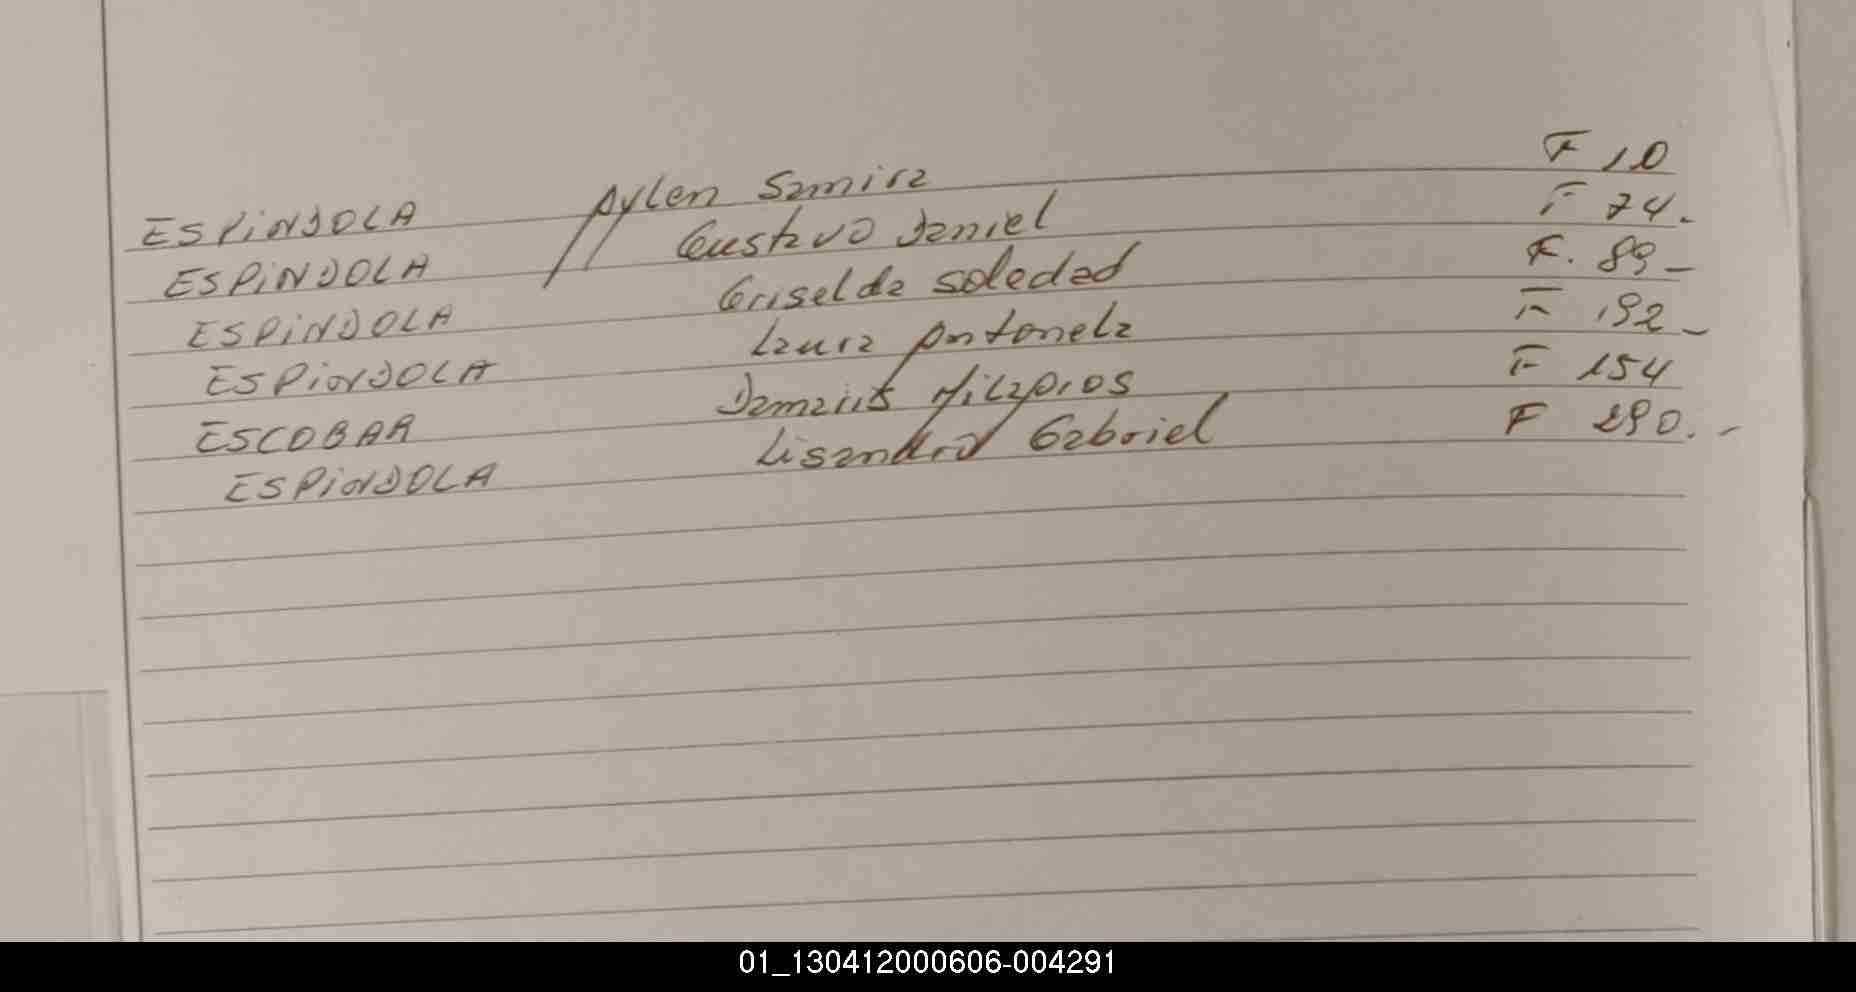 ESPINDOLA Aylen Samira F 10
ESPINDOLA Gustavo Daniel F 74.
ESPINDOLA Griselda Soledad F. 89_
ESPINDOLA Laura Antonela F 192_
ESCOBAR Damaris Milagros F 154
ESPINDOLA Lisandro Gabriel F 290.-
01_130412000606-004291